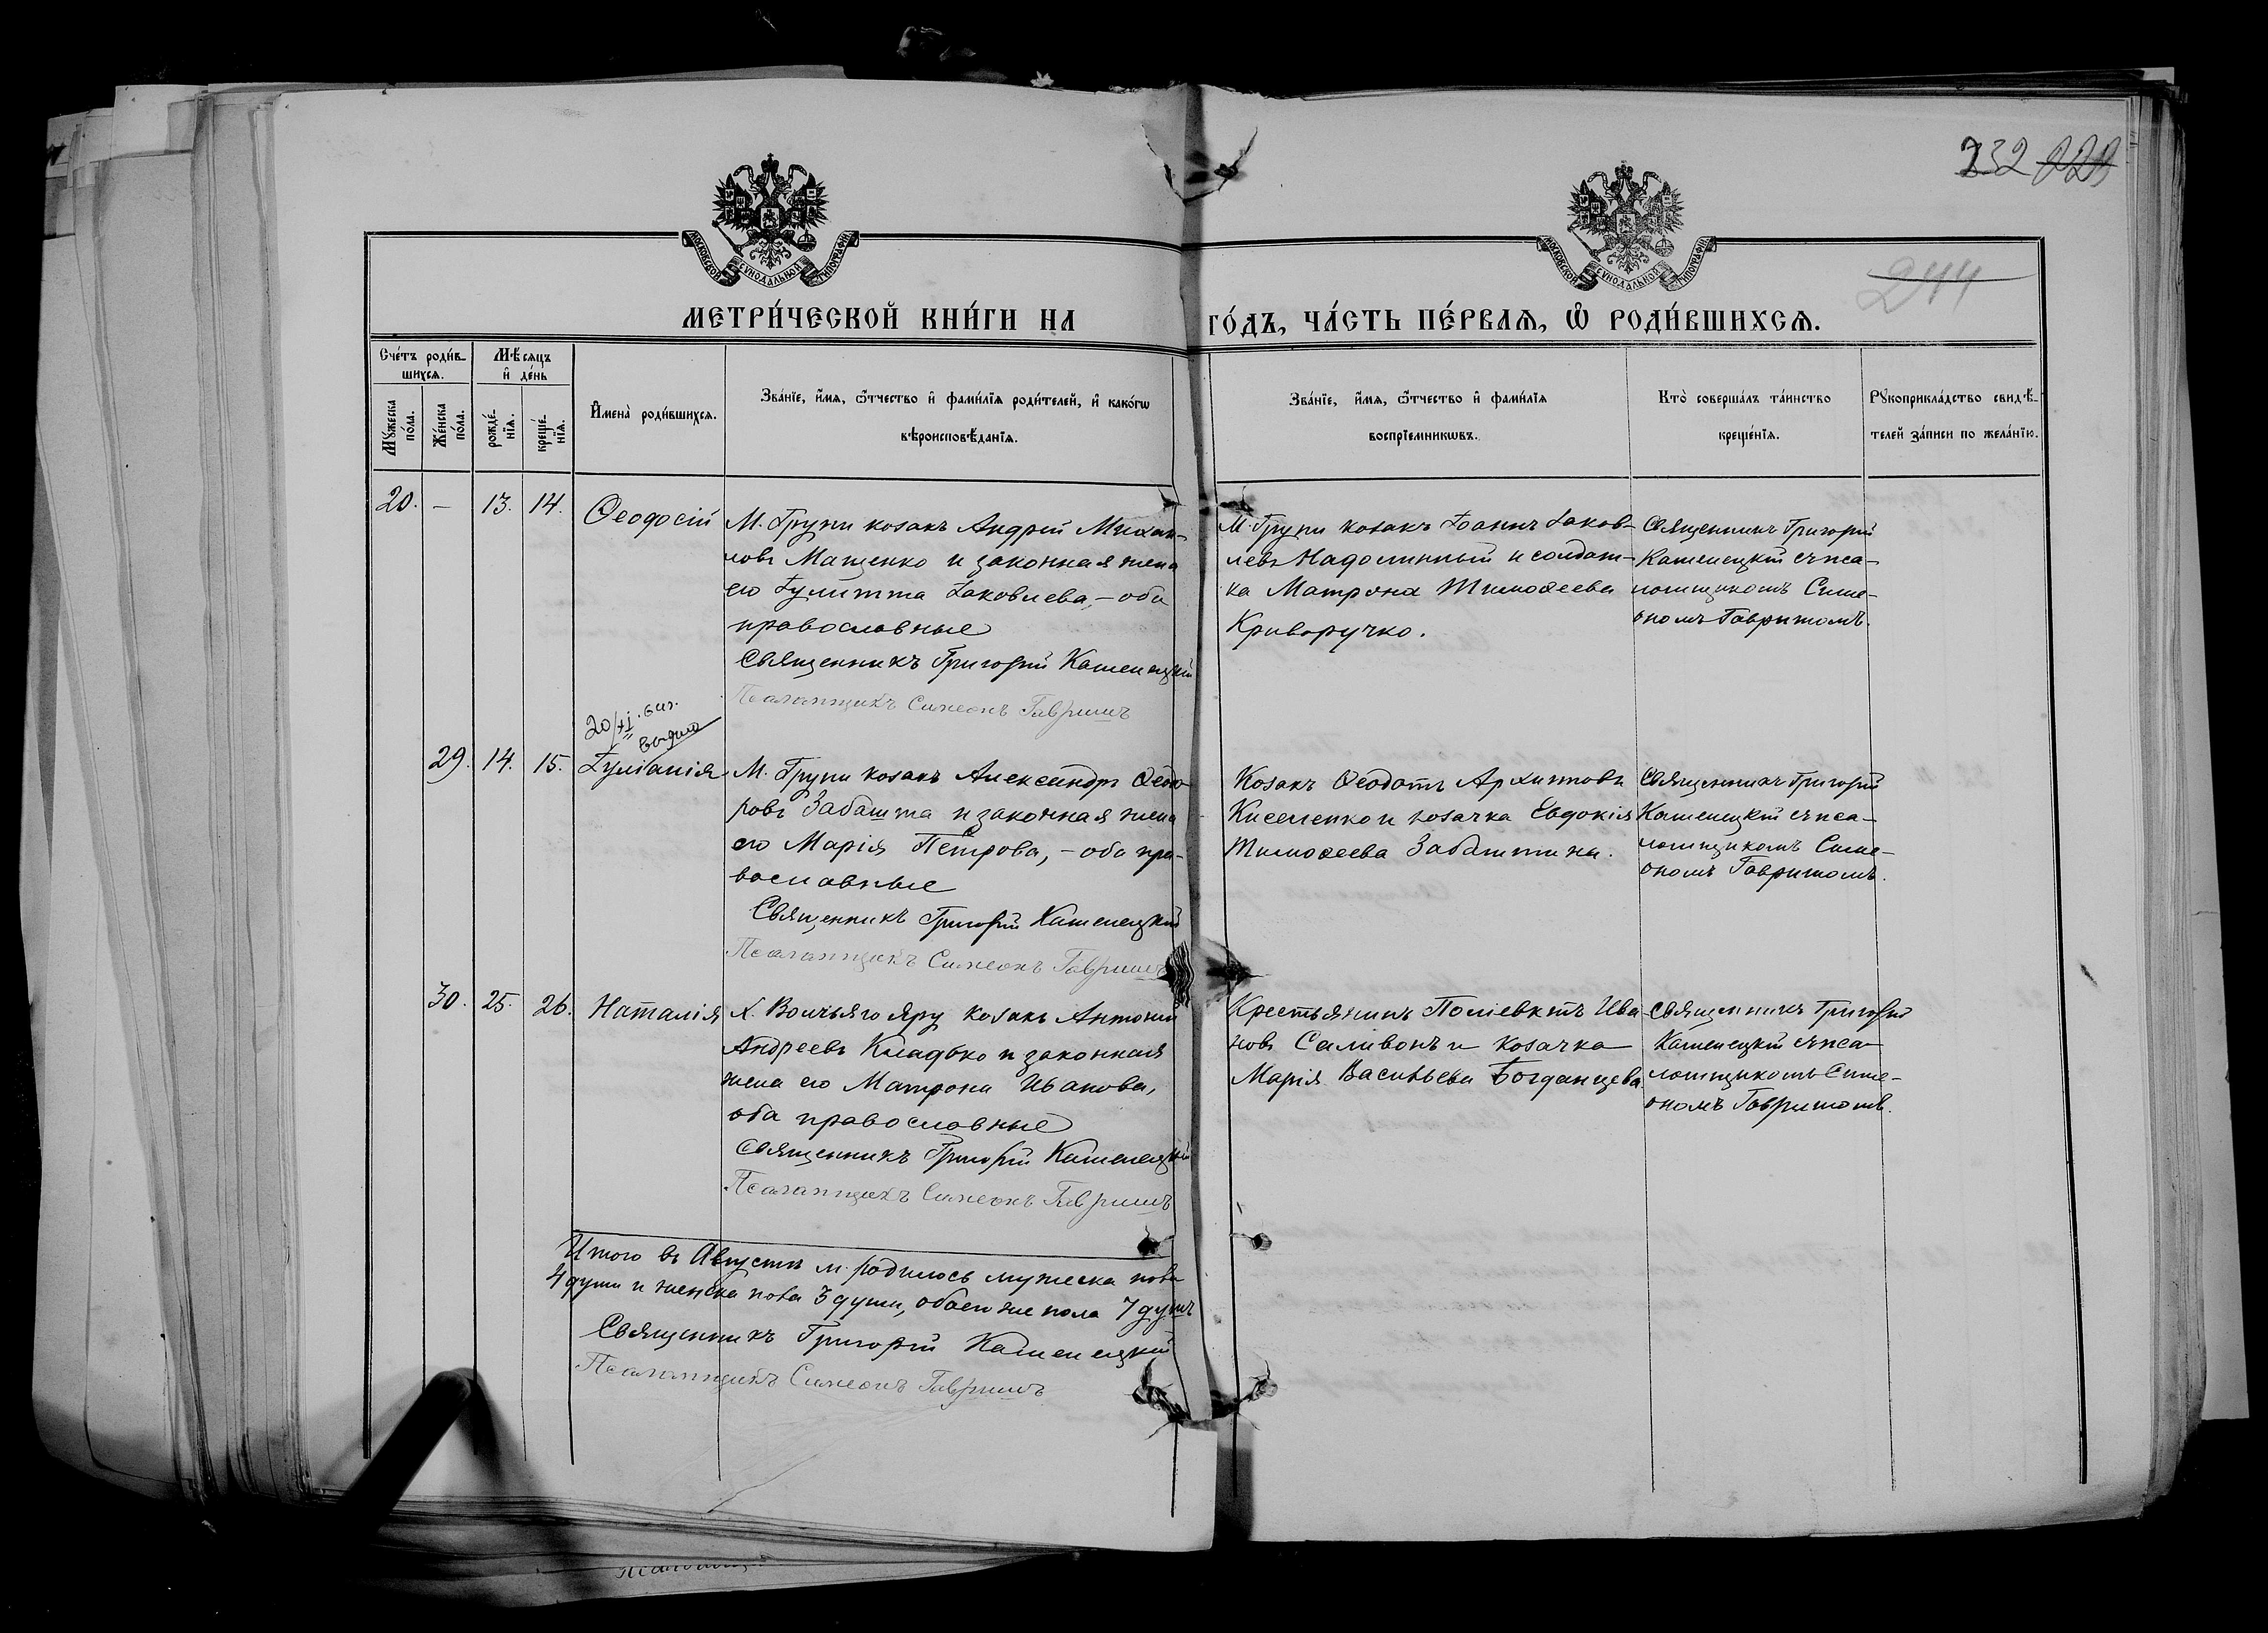 232 229
244
МОСКОВСКОЙ СѴНОДАЛЬНОЙ ТИПОГРАФІИ
МОСКОВСКОЙ СѴНОДАЛЬНОЙ ТИПОГРАФІИ
МЕТРИ́ЧЕСКОЙ КНИ́ГИ НА ГО́ДЪ, ЧА́СТЬ ПЕ́РВАѦ, Ѽ РОДИ́ВШИХСѦ.
Сче́тъ роди́в-
шихсѧ.
Мѣ́сѧцъ
и҆ де́нь
Мꙋ́жеска
по́ла.
Же́нска
по́ла.
рожде́-
нїѧ.
креще́-
нїѧ.
И҆мена̀ роди́вшихсѧ.
Зва́нїе, и҆́мѧ, ѻ҆́тчество и҆ фами́лїѧ роди́телей, и҆ како́гѡ
вѣроисповѣ́данїѧ.
Зва́нїе, и҆́мѧ, ѻ҆́тчество и҆ фами́лїѧ
воспрїе́мникѡвъ.
Кто̀ соверша́лъ та́инство
креще́нїѧ.
Рꙋкоприкла́дство свидѣ́-
телей за́писи по жела́нїю.
20. – 13. 14. Ѳеодосій
М. Груни козакъ Андрей Михаи-
ловъ Мащенко и законная жена
его Іулитта Іаковлева, – оба
православные
Священникъ Григорій Каменецкій
Псаломщикъ Симеонъ Гавришъ
М. Груни козакъ Іоаннъ Іаков-
левъ Надолинный и солдат-
ка Матрона Тимоѳеева
Криворучко.
Священникъ Григорій
Каменецкій съ пса-
ломщикомъ Симе-
ономъ Гавришомъ.
выдано
29. 14. 15. Іуліанія
М. Груни козакъ Александръ Ѳеодо-
ровъ Забашта и законная жена
его Марія Петрова, – оба пра-
вославные
Священникъ Григорій Каменецкій
Псаломщикъ Симеонъ Гавришъ
Козакъ Ѳеодотъ Архиповъ
Киселенко и козачка Евдокія
Тимоѳеева Забаштина.
Священникъ Григорій
Каменецкій съ пса-
ломщикомъ Симе-
ономъ Гавришомъ.
30. 25. 26. Наталія
х. Волчьяго Яру козакъ Антоній
Андреевъ Кладько и законная
жена его Матрона Иванова,
оба православные
Священникъ Григорій Каменецкій
Псаломщикъ Симеонъ Гавришъ
Крестьянинъ Поліевктъ Ива-
новъ Саливонъ и козачка
Марія Васильева Богданцева
Священникъ Григорій
Каменецкій съ пса-
ломщикомъ Симе-
ономъ Гавришомъ.
Итого въ Августѣ м. родилось мужеска пола
4 души и женска пола 3 души, обоего же пола 7 душъ
Священникъ Григорій Каменецкій
Псаломщикъ Симеонъ Гавришъ